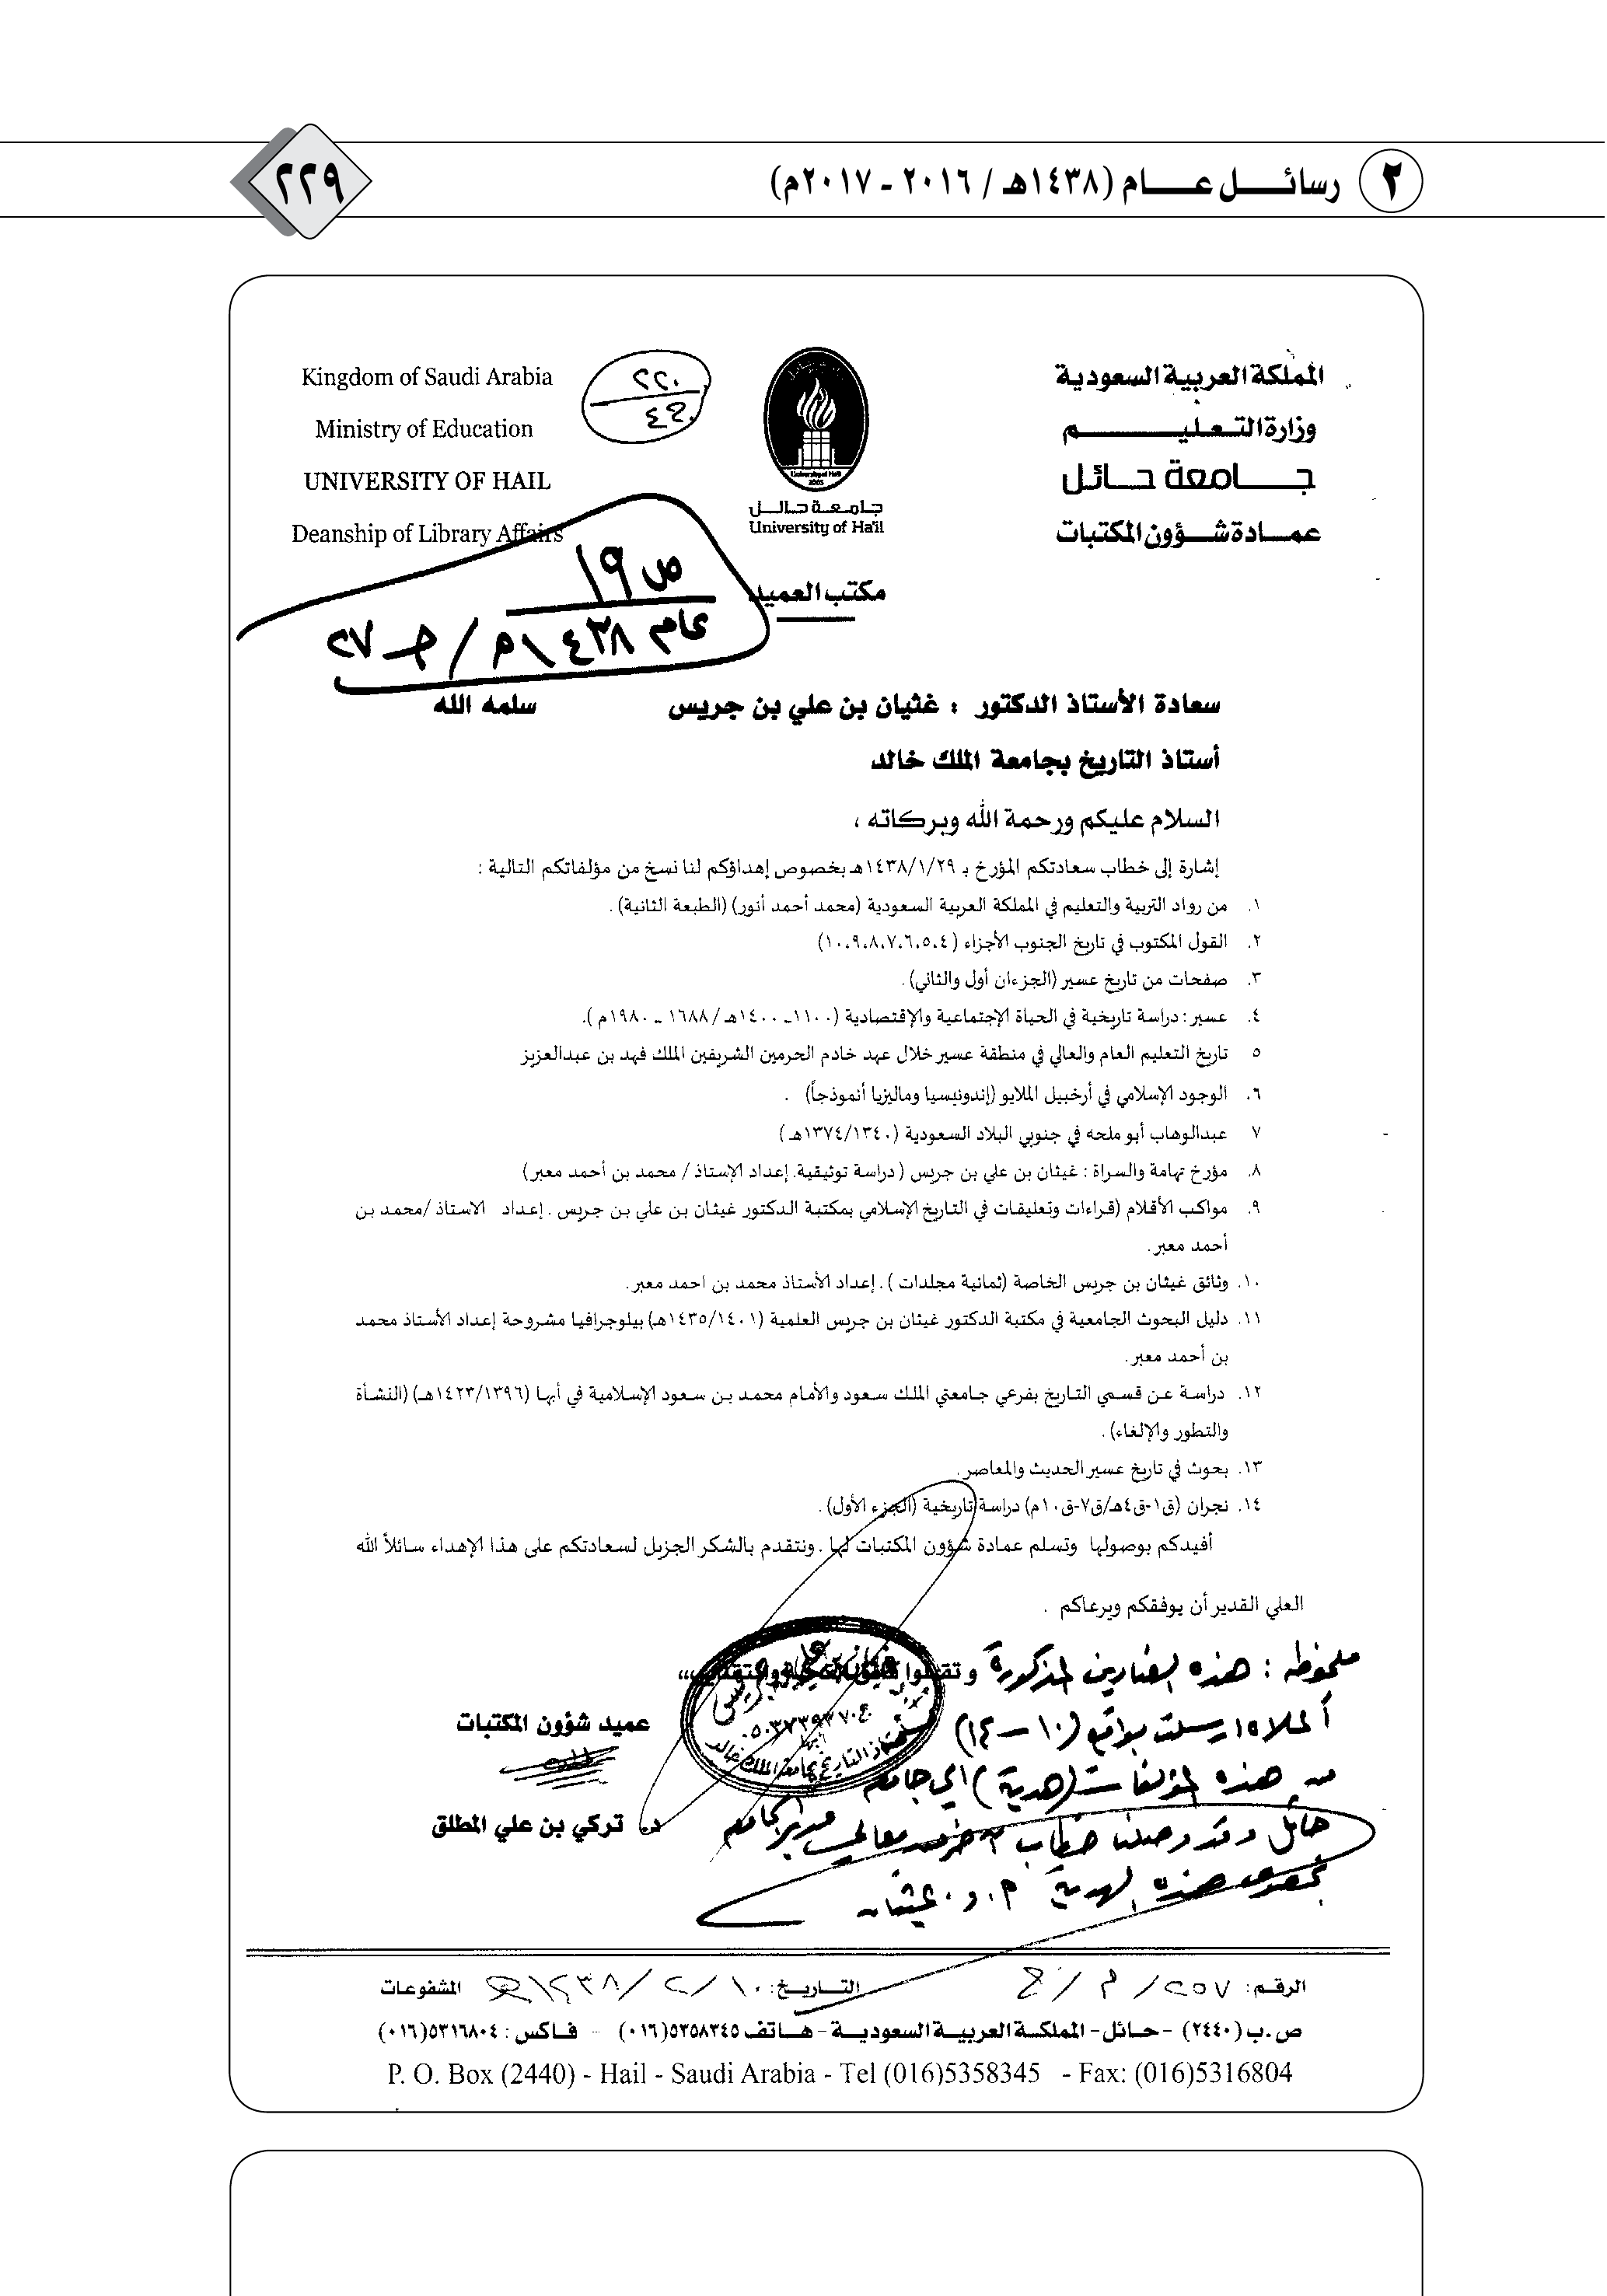 ٢ رسائل عام (١٤٣٨هـ / ٢٠١٦ - ٢٠١٧م)
٢٢٩
المملكة العربية السعودية
وزارة التعليم
جامعة حائل
عمادة شؤون المكتبات
جامعة حائل
University of Ha'il
مكتب العميد
Kingdom of Saudi Arabia
Ministry of Education
UNIVERSITY OF HAIL
Deanship of Library Affairs
٢٢٠
ص ١٩
عام ١٤٣٨هـ / جـ ٢٧
سعادة الأستاذ الدكتور : غثيان بن علي بن جريس سلمه الله
أستاذ التاريخ بجامعة الملك خالد
السلام عليكم ورحمة الله وبركاته ،
إشارة إلى خطاب سعادتكم المؤرخ بـ ١٤٣٨/١/٢٩هـ بخصوص إهداؤكم لنا نسخ من مؤلفاتكم التالية :
١. من رواد التربية والتعليم في المملكة العربية السعودية (محمد أحمد أنور) (الطبعة الثانية) .
٢. القول المكتوب في تاريخ الجنوب الأجزاء (١٠،٩،٨،٧،٦،٥،٤)
٣. صفحات من تاريخ عسير (الجزءان أول والثاني) .
٤. عسير : دراسة تاريخية في الحياة الإجتماعية والإقتصادية (١١٠٠ـ ١٤٠٠هـ / ١٦٨٨ ـ ١٩٨٠م ).
٥ تاريخ التعليم العام والعالي في منطقة عسير خلال عهد خادم الحرمين الشريفين الملك فهد بن عبدالعزيز
٦. الوجود الإسلامي في أرخبيل الملايو (إندونيسيا وماليزيا أنموذجاً) .
٧ عبدالوهاب أبو ملحه في جنوبي البلاد السعودية (١٣٧٤/١٣٤٠هـ )
٨. مؤرخ تهامة والسراة : غيثان بن علي بن جريس ( دراسة توثيقية. إعداد الإستاذ / محمد بن أحمد معبر)
٩. مواكب الأقلام (قراءات وتعليقات في التاريخ الإسلامي بمكتبة الدكتور غيثان بن علي بن جريس . إعداد الاستاذ /محمد بن
أحمد معبر .
١٠. وثائق غيثان بن جريس الخاصة (ثمانية مجلدات ) . إعداد الأستاذ محمد بن احمد معبر.
١١. دليل البحوث الجامعية في مكتبة الدكتور غيثان بن جريس العلمية (١٤٣٥/١٤٠١هـ) بيلوجرافيا مشروحة إعداد الأستاذ محمد
بن أحمد معبر .
١٢. دراسة عن قسمي التاريخ بفرعي جامعتي الملك سعود والأمام محمد بن سعود الإسلامية في أبها (١٤٢٣/١٣٩٦هـ) (النشأة
والتطور والإلغاء) .
١٣. بحوث في تاريخ عسير الحديث والمعاصر .
١٤. نجران (ق١-ق٤هـ/ق٧-ق١٠م) دراسة تاريخية (الجزء الأول) .
أفيدكم بوصولها وتسلم عمادة شؤون المكتبات لها . ونتقدم بالشكر الجزيل لسعادتكم على هذا الإهداء سائلاً الله
العلي القدير أن يوفقكم ويرعاكم .
وتقبلوا
ملحوظه : هذه العناوين المذكورة
أعلاه أرسلت بواقع (١٠ – ١٢)
من هذه المؤلفات (هدية) إلى جامعة
حائل وقد وصلنا خطاب آخر من معالي مدير الجامعة
بخصوص هذه الهدية أ. د. غيثان
٠٥٠٣٧٣٩٣٧٠٤
أستاذ التاريخ بجامعة الملك خالد
عميد شؤون المكتبات
د. تركي بن علي المطلق
الرقم: ٢٥٧ / م / ع التاريخ: ١٠ / ٢ / ١٤٣٨هـ المشفوعات
ص.ب (٢٤٤٠) - حائل - المملكة العربية السعودية - هاتف ٥٣٥٨٣٤٥(٠١٦) - فاكس : ٥٣١٦٨٠٤(٠١٦)
P. O. Box (2440) - Hail - Saudi Arabia - Tel (016)5358345 - Fax: (016)5316804